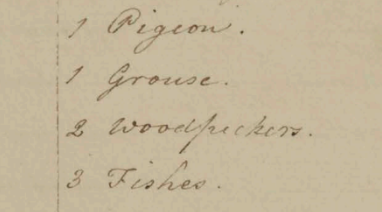 1 Pigeon.
1 Grouse.
2 Woodpeckers.
3 Fishes.